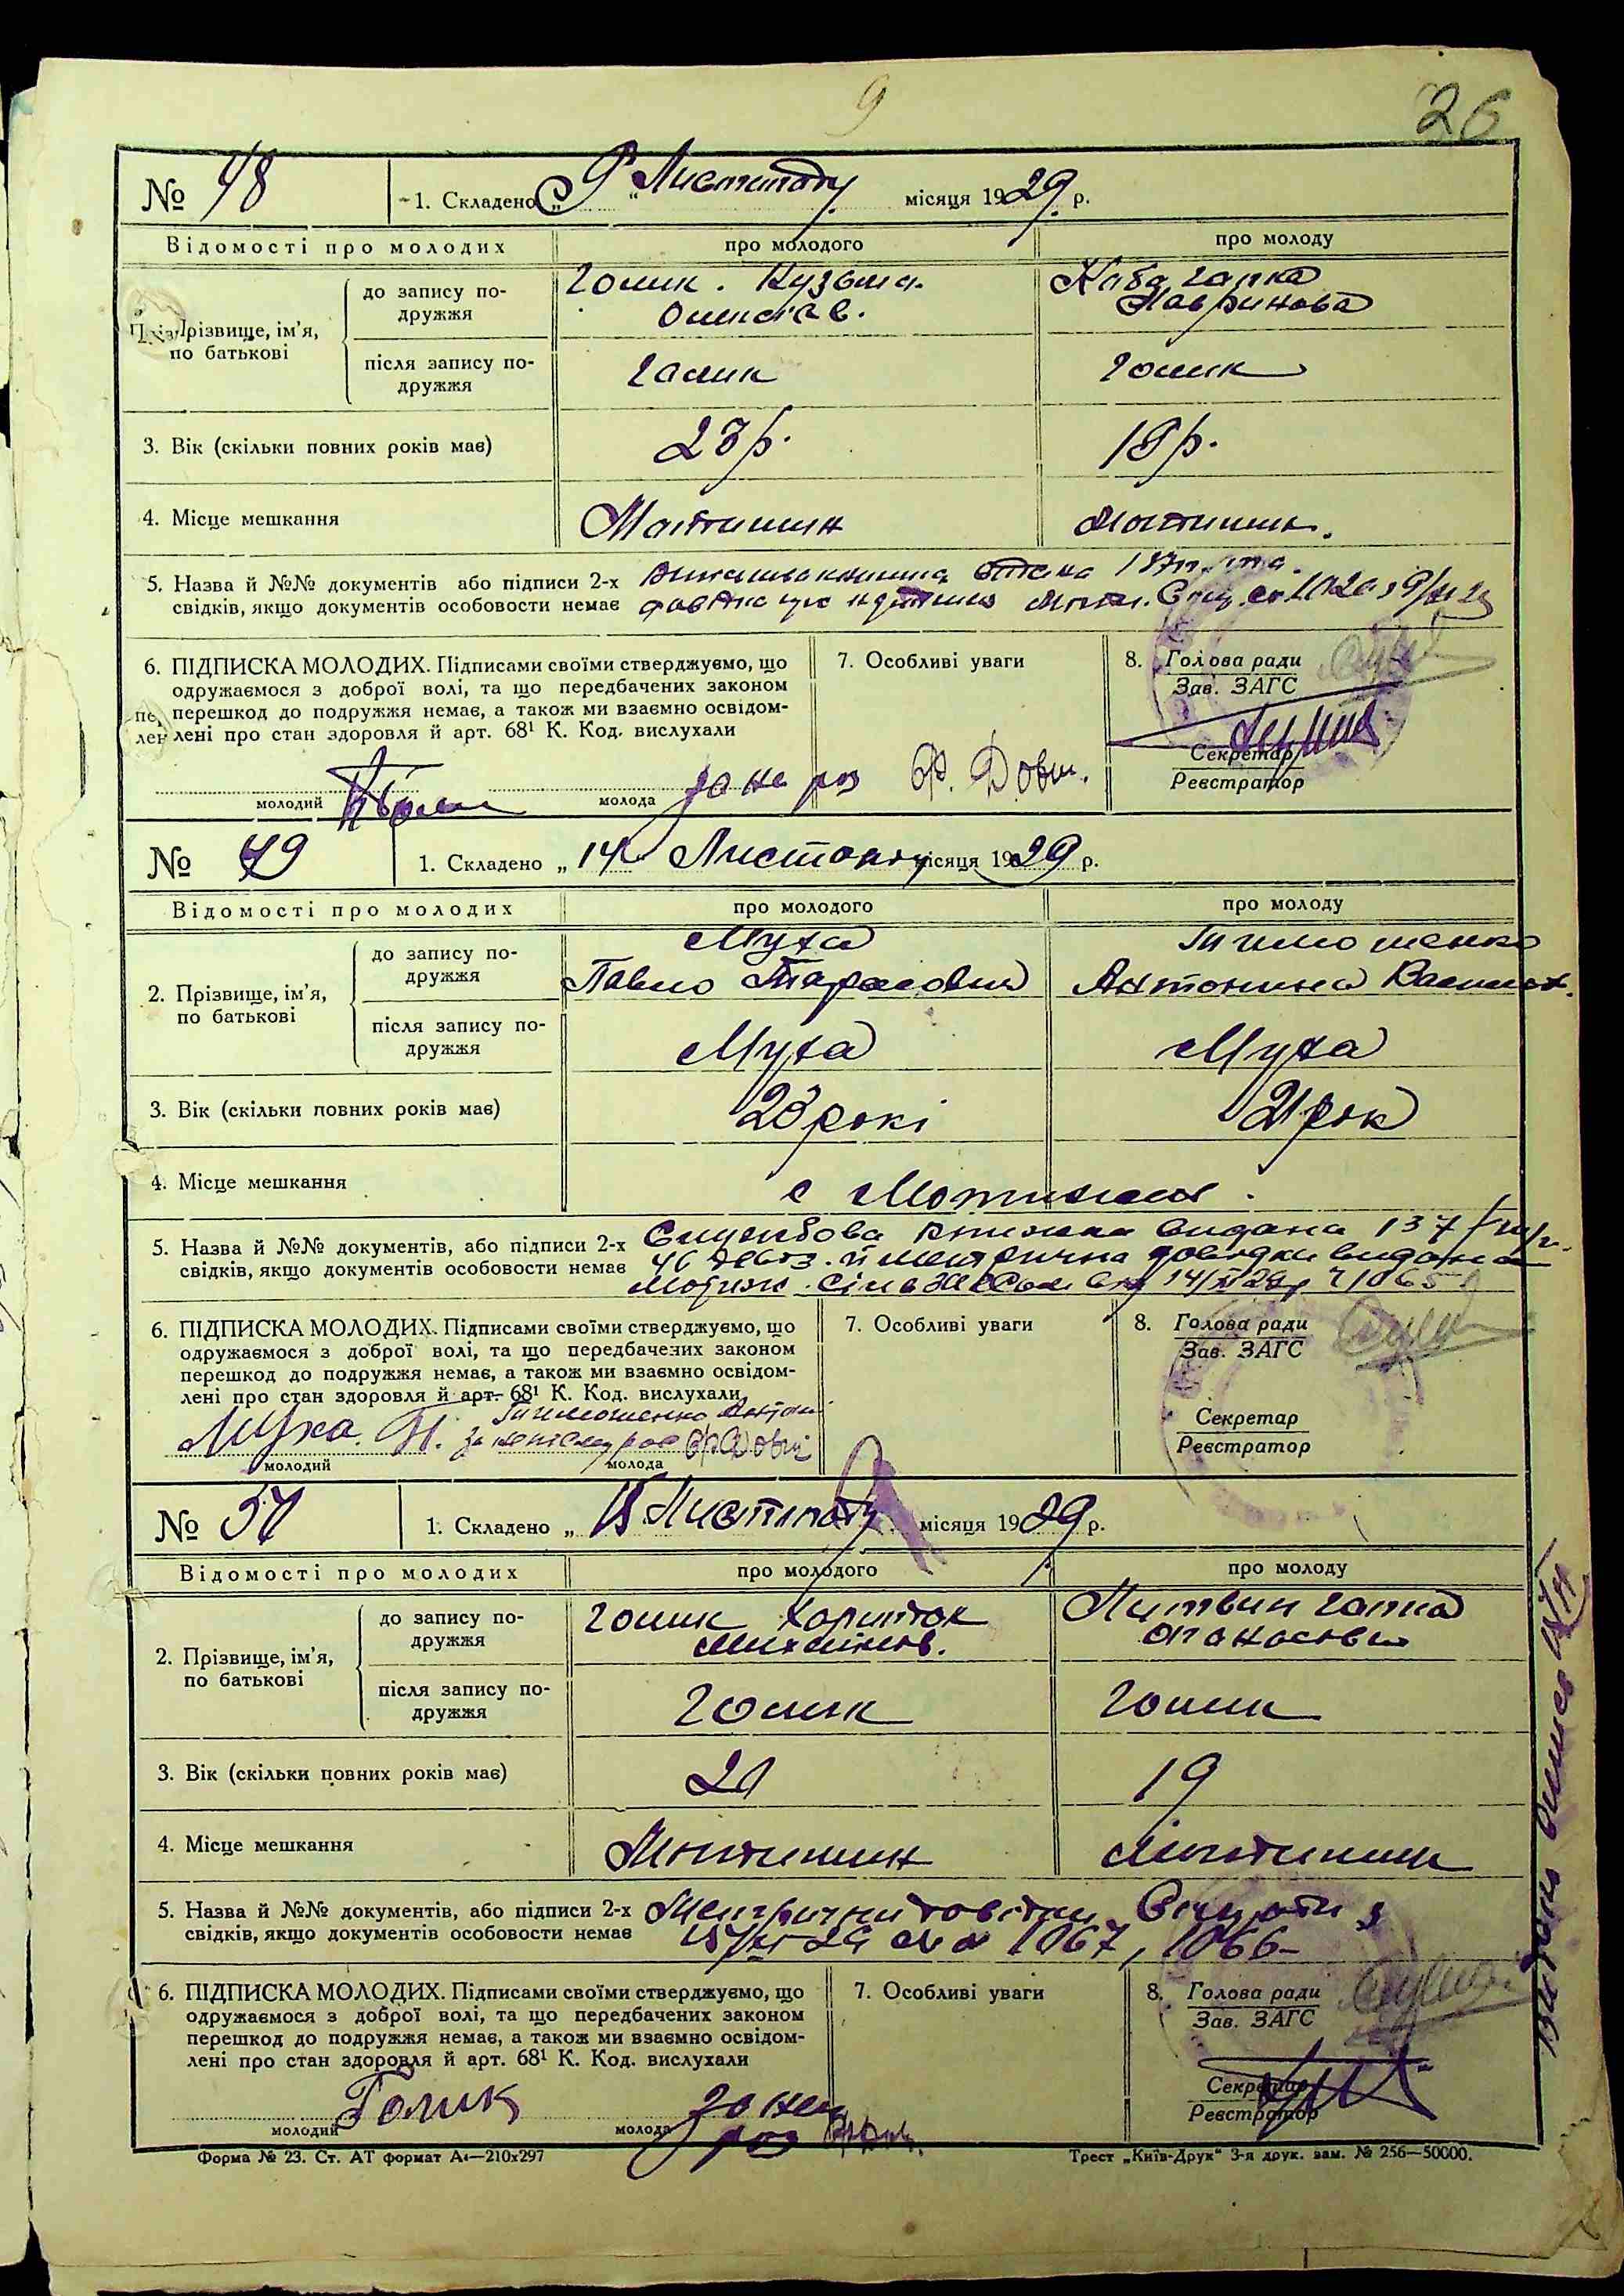 9
26
№ 48 1. Складено „9“ Листопаду місяця 1929 р.
Відомості про молодих про молодого про молоду
Прізвище, ім’я, по батькові
до запису подружжя
Голик. Кузьма
Каба Гапка
Лавринова
після запису подружжя
Голик Голик
3. Вік (скільки повних років має) 23 р. 18 р.
4. Місце мешкання Мотижин Мотижин.
5. Назва й №№ документів або підписи 2-х
свідків, якщо документів особовости немає
6. ПІДПИСКА МОЛОДИХ. Підписами своїми стверджуємо, що
одружаємося з доброї волі, та що передбачених законом
перешкод до подружжя немає, а також ми взаємно освідом-
лені про стан здоровля й арт. 68¹ К. Код. вислухали
7. Особливі уваги
8. Голова ради
Зав. ЗАГС
Секретар
Реєстратор
молодий молода за не роз
№ 49 1. Складено „14“ Листопаду місяця 1929 р.
Відомості про молодих про молодого про молоду
2. Прізвище, ім’я,
по батькові
до запису по-
дружжя
Муха
Павло Тарасович
Тимошенко
Антонина Васильов.
після запису по-
дружжя
Муха Муха
3. Вік (скільки повних років має) 23 рокі 21 рок
4. Місце мешкання с Мотижин.
5. Назва й №№ документів, або підписи 2-х
свідків, якщо документів особовости немає
книжка видана 137
метрична довідка видана
14/XI 29р
6. ПІДПИСКА МОЛОДИХ. Підписами своїми стверджуємо, що
одружаємося з доброї волі, та що передбачених законом
перешкод до подружжя немає, а також ми взаємно освідом-
лені про стан здоровля й арт. 68¹ К. Код. вислухали
Муха. П. Тимошенко Антон
молодий молода
7. Особливі уваги
8. Голова ради
Зав. ЗАГС
Секретар
Реєстратор
№ 50 1. Складено „15 Листопаду місяця 1929 р.
Відомості про молодих про молодого про молоду
2. Прізвище, ім’я,
по батькові
до запису по-
дружжя
Голик Харитон
Михайлов.
Литвин Гапка
Опанасовна
після запису по-
дружжя
Голик Голик
3. Вік (скільки повних років має) 21 19
4. Місце мешкання Мотижин Мотижин
5. Назва й №№ документів, або підписи 2-х
свідків, якщо документів особовости немає
15/XI 29 1067, 1066
6. ПІДПИСКА МОЛОДИХ. Підписами своїми стверджуємо, що
одружаємося з доброї волі, та що передбачених законом
перешкод до подружжя немає, а також ми взаємно освідом-
лені про стан здоровля й арт. 68¹ К. Код. вислухали
Голик
молодий молода за неп
роз
7. Особливі уваги
8. Голова ради
Зав. ЗАГС
Секретар
Реєстратор
Форма № 23. Ст. АТ формат А₄—210x297
Трест „Київ-Друк“ 3-я друк. зам. № 256—50000.